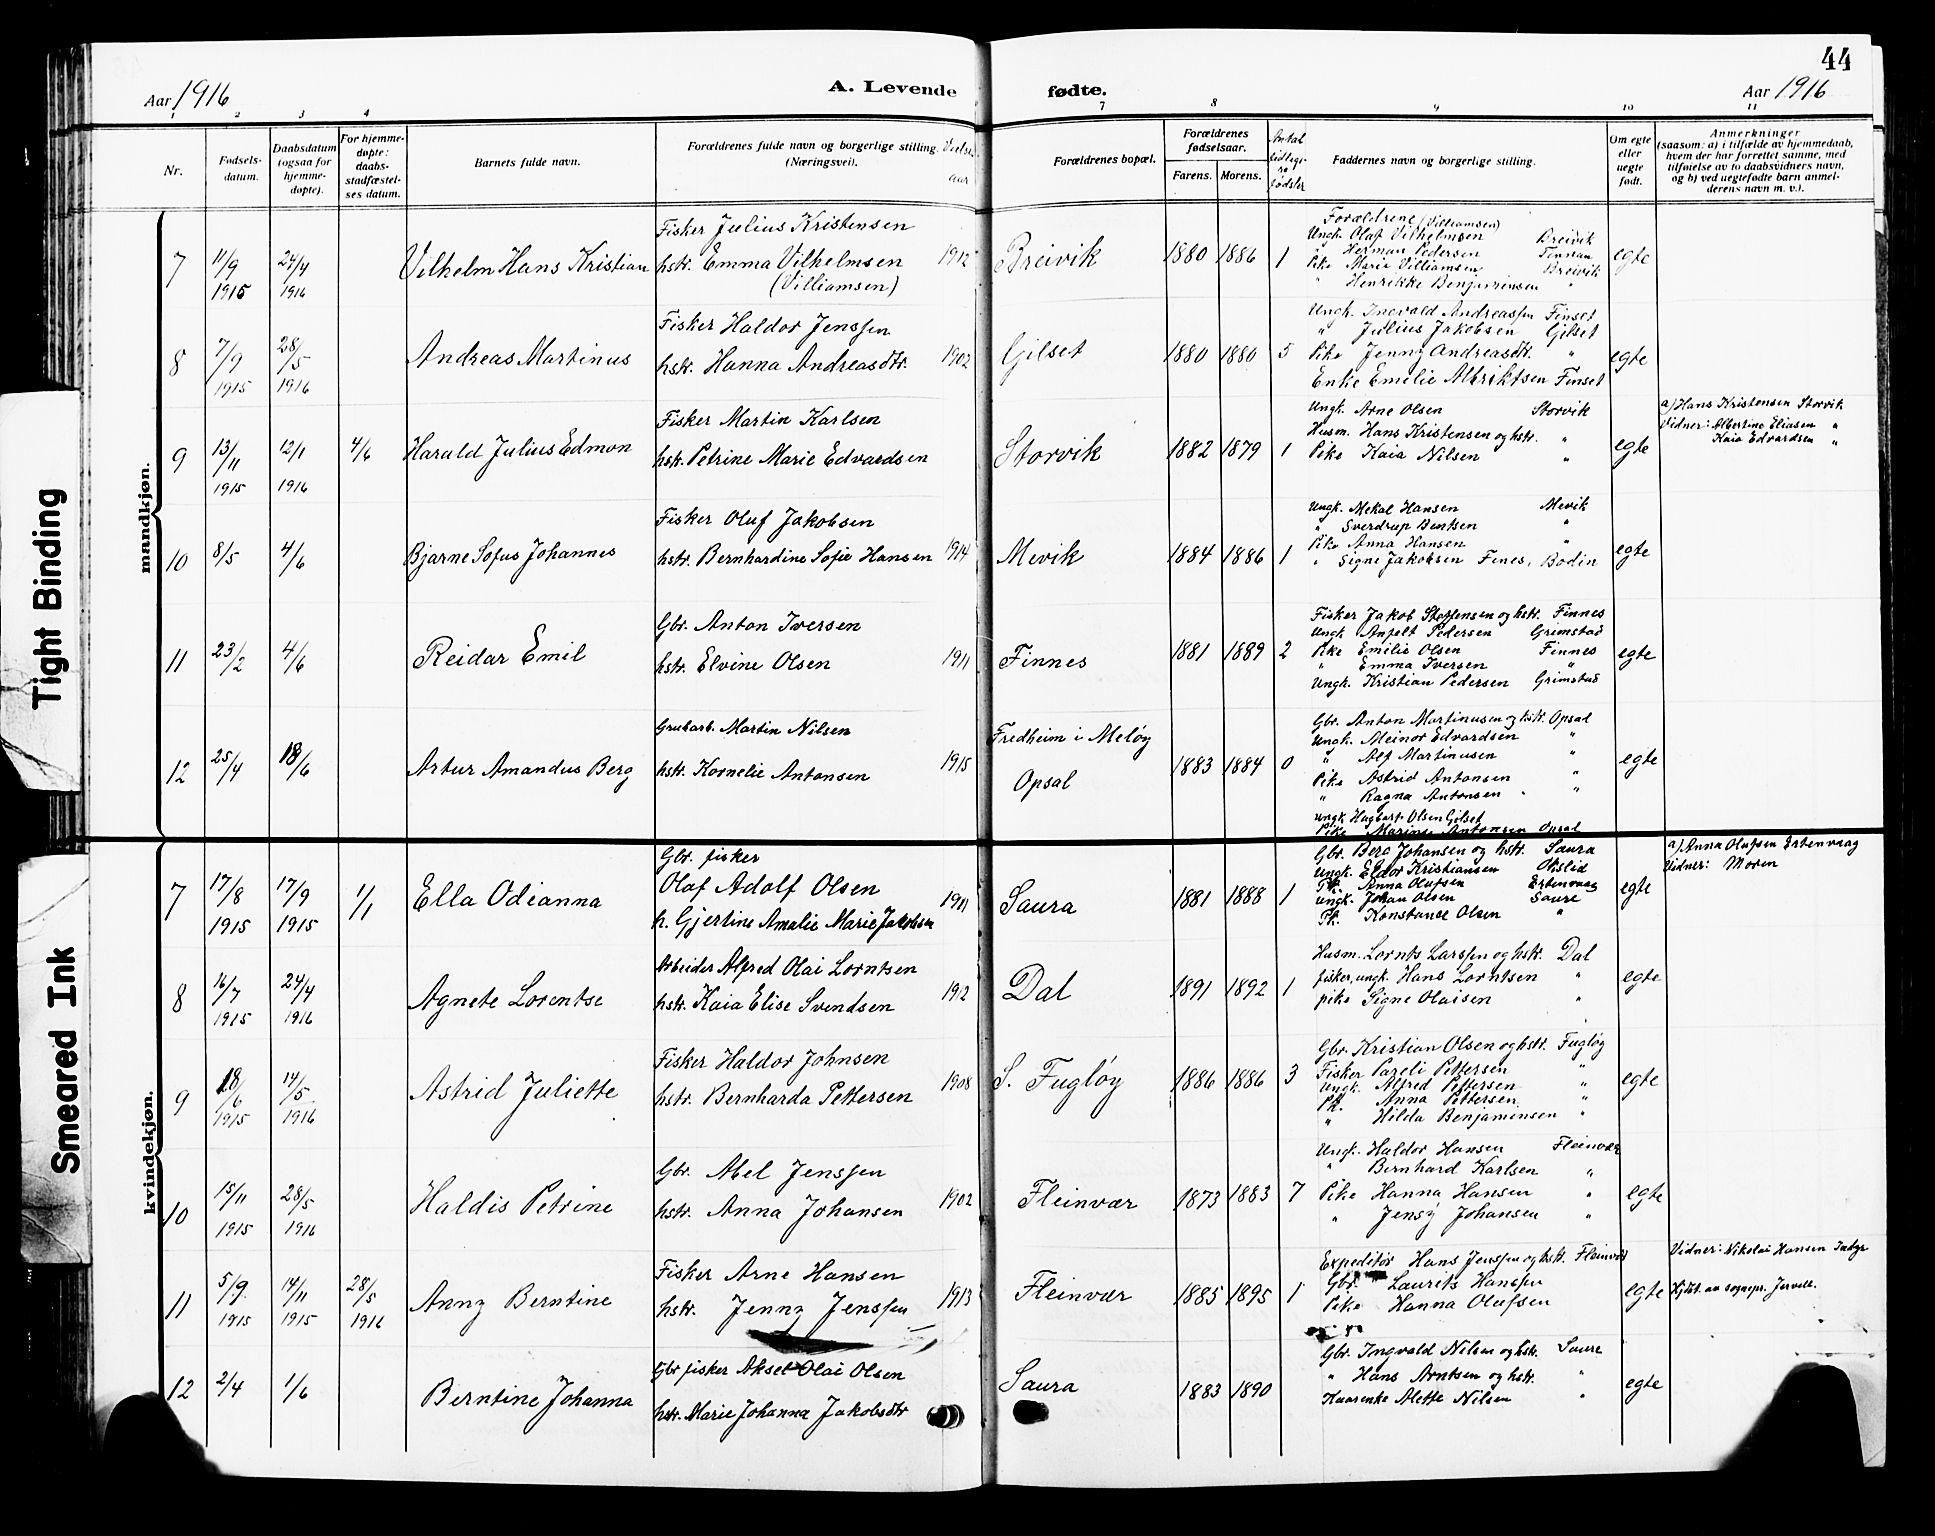 44
Aar 1916
A. Levende fødte.
Aar 1916
1 2 3 4 7 8 9 10 11
Nr.
Fødsels-
datum.
Daabsdatum
(ogsaa for
hjemme-
døpte).
For hjemme-
døpte:
daabs-
stadfæstel-
ses datum.
Barnets fulde navn.
Forældrenes fulde navn og borgerlige stilling.
(Næringsvei).
Vielses
aar
Forældrenes bopæl.
Forældrenes
fødselsaar.
Farens. Morens.
Antal
tidlige-
re
fødsler
Faddernes navn og borgerlige stilling.
Om egte
eller
uegte
født.
Anmerkninger
(saasom: a) i tilfælde av hjemmedaab,
hvem der har forrettet samme, med
tilføielse av to daabsvidners navn,
og b) ved uegtefødte barn anmel-
derens navn m. v.).
mandkjøn.
7 11/9 1915 24/4 1916
Vilhelm Hans Kristian
Fisker Julius Kristensen
hstr. Emma Vilhelmsen
(Villiamsen)
1912 Breivik 1880 1886 1
Forældrene (Villiamsen)
Ungk. Olaf Vilhelmsen Breivik
" Herman Pedersen Finnan
Pike Marie Villiamsen Breivik
" Henrikke Benjaminsen "
egte
8 7/9 1915 28/5 1916
Andreas Martinus
Fisker Haldor Jenssen
hstr. Hanna Andreasdtr.
1902 Gilset 1880 1880 5
Ungk. Ingvald Andreassen Finset
" Julius Jakobsen Gilset
Pike Jenny Andreasdtr. "
Enke Emelie Albriktsen Finset
egte
9 13/11 1915 12/1 1916 4/6
Harald Julius Edmon
Fisker Martin Karlsen
hstr. Petrine Marie Edvardsen
Storvik 1882 1879 1
Ungk. Arne Olsen Storvik
Husm. Hans Kristensen og hstr. "
Pike Kaia Nilsen "
egte
a) Hans Kristensen Storvik
Vidner: Albertine Eliasen "
Kaia Edvardsen "
10 8/5 4/6
Bjarne Sofus Johannes
Fisker Oluf Jakobsen
hstr. Bernhardine Sofie Hansen
1914 Mevik 1884 1886 1
Ungk. Mekal Hansen Mevik
" Sverdrup Bentsen "
Pike Anna Hansen "
" Signe Jakobsen Fines, Bodin
egte
11 23/2 4/6
Reidar Emil
Gbr. Anton Iversen
hstr. Elvine Olsen
1911 Finnes 1881 1889 2
Fisker Jakob Steffensen og hstr. Finnes
Ungk. Anfelt Pedersen Grimstad
Pike Emilie Olsen Finnes
" Emma Iversen "
Ungk. Kristian Pedersen Grimstad
egte
12 25/4 18/6
Artur Amandus Berg
Grubarb. Martin Nilsen
hstr. Kornelie Antonsen
1915
Fredheim i Meløy
Opsal
1883 1884 0
Gbr. Anton Martinusen og hstr. Opsal
Ungk. Meinor Edvardsen "
" Alf Martinusen "
Pike Astrid Antonsen "
" Ragna Antonsen "
Ungk. Hagbart Olsen Gilset
Pike Marine Antonsen Opsal
egte
kvindekjøn.
7 17/8 1915 17/9 1915 1/1
Ella Odianna
Gbr. fisker
Olaf Adolf Olsen
h. Gjertine Amalie Marie Jakobsen
1911 Saura 1881 1888 1
Gbr. Berg Johansen og hstr. Saura
Ungk. Eldor Kristiansen Økslid
Pk. Anna Olufsen Ertenvaag
Ungk. Johan Olsen Saura
Pk. Konstance Olsen "
egte
a) Anna Olufsen Ertenvaag
Vidner: Moren
8 16/7 1915 24/4 1916
Agnete Lorentse
Arbeider Alfred Olai Lorntsen
hstr. Kaia Elise Svendsen
1912 Dal 1891 1892 1
Husm. Lornts Larssen og hstr. Dal
fisker, ungk. Hans Lorntsen "
pike Signe Olaisen "
egte
9 18/6 1915 14/5 1916
Astrid Juliette
Fisker Haldor Johnsen
hstr. Bernharda Pettersen
1908 S. Fugløy 1886 1886 3
Gbr. Kristian Olsen og hstr. Fugløy
Fisker Pareli Pettersen "
Ungk. Alfred Pettersen "
Pk. Anna Pettersen "
" Hilda Benjaminsen "
egte
10 15/11 1915 28/5 1916
Haldis Petrine
Gbr. Abel Jenssen
hstr. Anna Johansen
1902 Fleinvær 1873 1883 7
Ungk. Haldor Hansen Fleinvær
" Bernhard Karlsen "
Pike Hanna Hansen "
" Jensy Johansen "
egte
11 5/9 1915 14/11 1915 28/5 1916
Anny Berntine
Fisker Arne Hansen
hstr. Jenny Jenssen
1913 Fleinvær 1885 1895 1
Expeditør Hans Jenssen og hstr. Fleinvær
Gbr. Laurits Hanssen
Pike Hanna Olufsen
egte
Vidner: Nikolai Hansen Indyr
Hjdøt. av sognepr. Jervell.
12 2/4 1/6
Berntine Johanna
Gbr fisker Aksel Olai Olsen
hstr. Marie Johanna Jakobsdtr
Saura 1883 1890
Gbr. Ingvald Nilsen og hstr. Saura
" Hans Arntsen og hstr. "
Kaarenke Alette Nilsen "
egte
Tight Binding
Smeared Ink